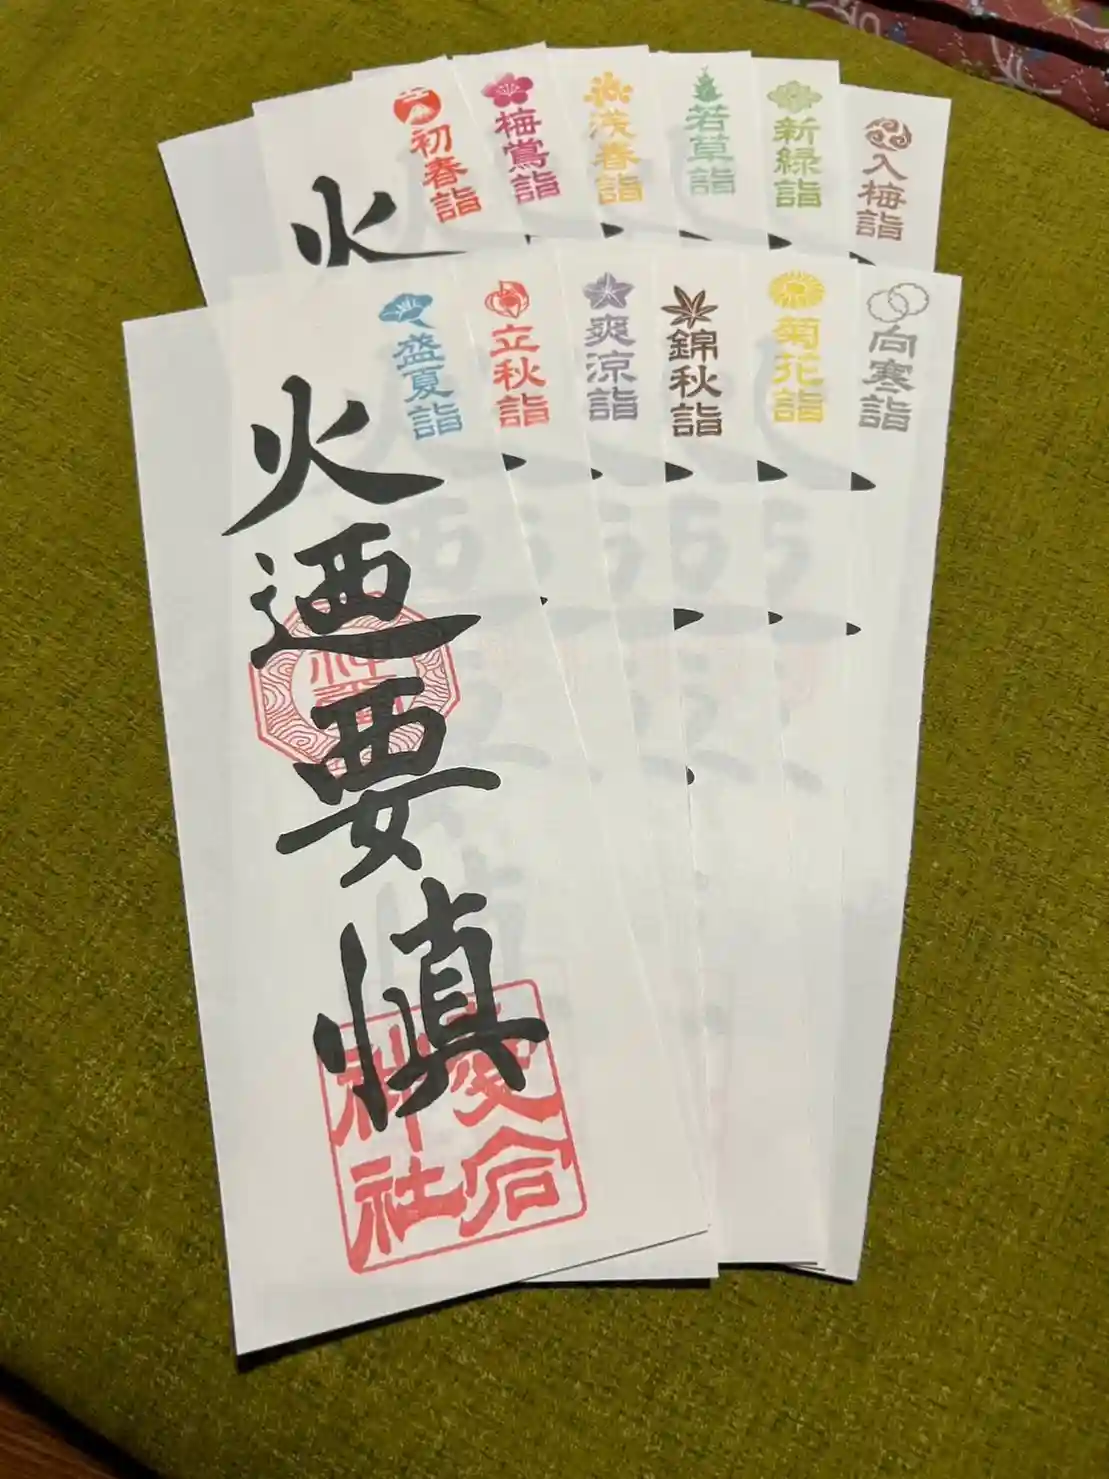 初春詣
梅鶯詣
浅春詣
若草詣
新緑詣
入梅詣
火
盛夏詣
立秋詣
爽涼詣
錦秋詣
菊花詣
向寒詣
火迺要慎
愛宕
神社